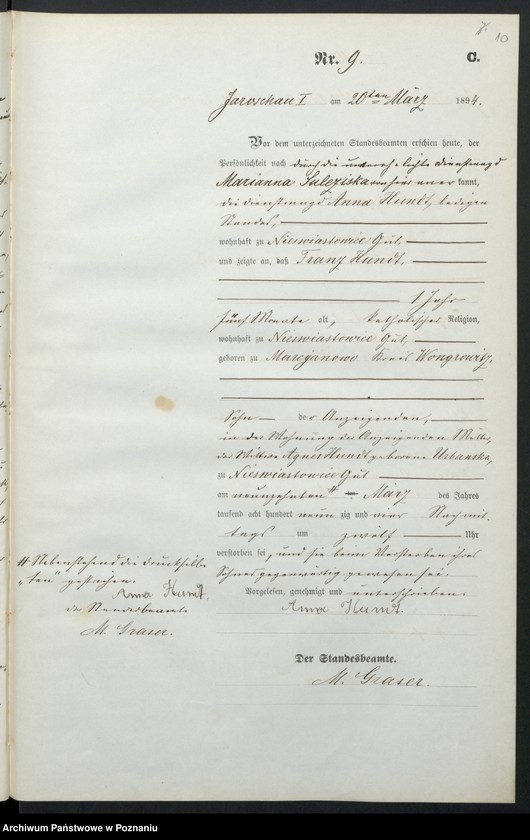 7. 10
Nr. 9. C.
Jaroschau I am 20ten März 1894.
Vor dem unterzeichneten Standesbeamten erschien heute, der
Persönlichkeit nach durch die unverehelichte Dienstmagd
Marianna kannt,
die Dienstmagd Anna Hundt, ledigen
Standes,
wohnhaft zu Nieswiastowice Gut,
und zeigte an, daß Franz Hundt,
1 Jahr
fünf Monate alt, katholischer Religion,
wohnhaft zu Nieswiastowice Gut,
geboren zu Marcyanowo Kreis Wongrowitz,
Sohn der Anzeigenden,
in der Wohnung der Anzeigenden Mutter,
der Wittwe Agnes Hundt geborene Urbanska,
zu Nieswiastowice Gut
am neunzehnten März des Jahres
tausend acht hundert neun zig und vier Nachmit-
tags um zwölf Uhr
verstorben sei, und sie beim Versterben ihres
Sohnes gegenwärtig gewesen sei.
Vorgelesen, genehmigt und unterschrieben
Anna Hundt.
Der Standesbeamte.
M. Graser.
# Nebenstehend die Drucksilbe
"ten" gestrichen.
Anna Hundt.
der Standesbeamte
M. Graser.
Archiwum Państwowe w Poznaniu